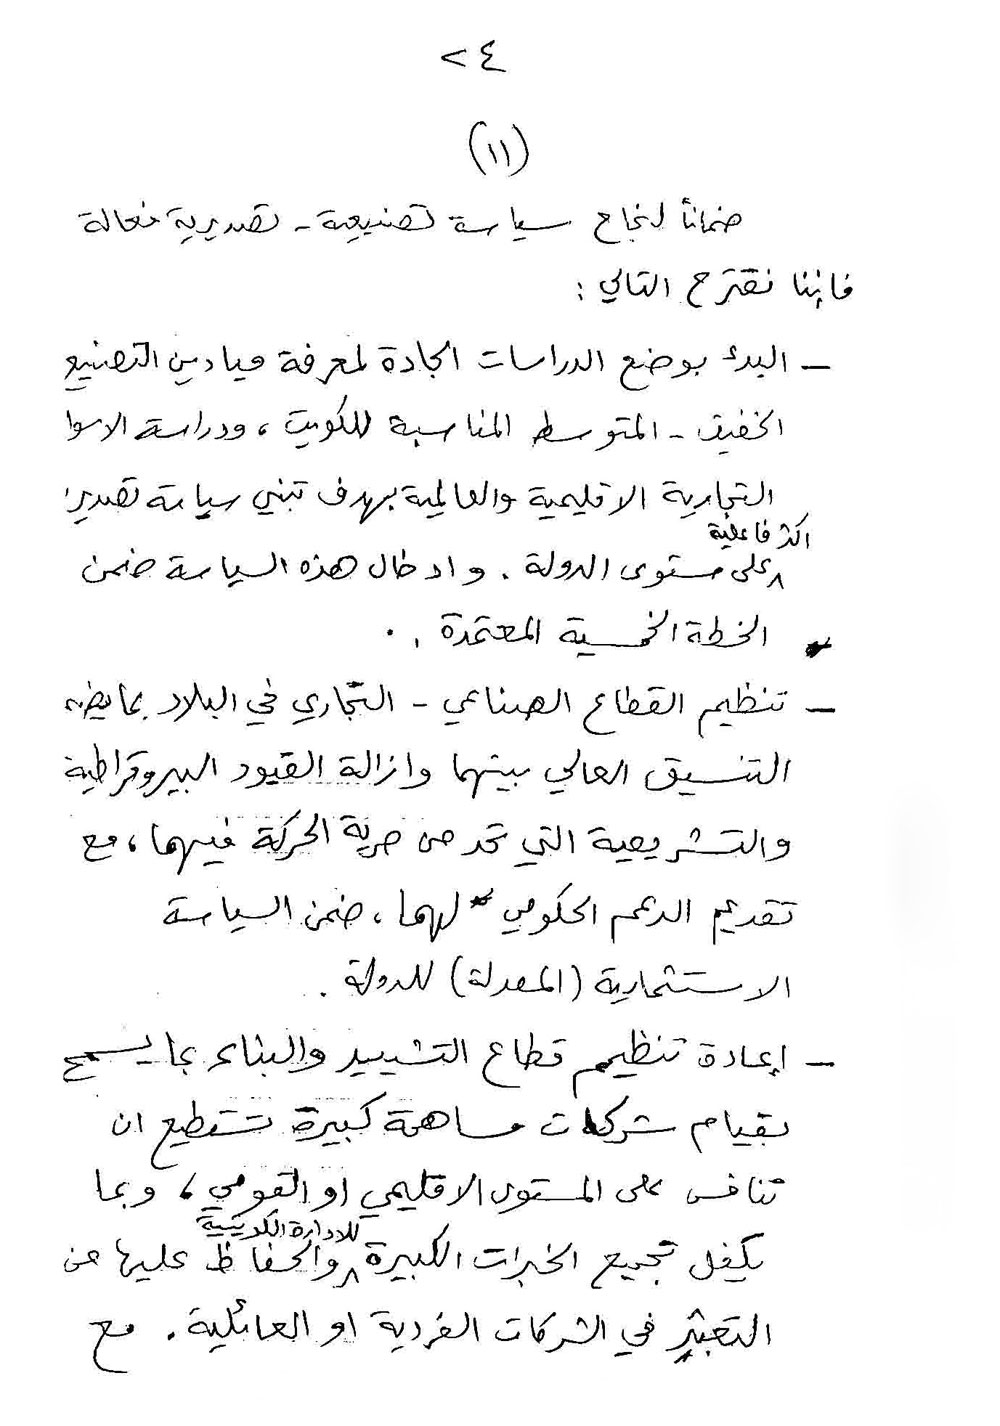 ٢٤
(١١)
ضماناً لنجاح سياسة تصنيعية - تصديرية فعالة
فإننا نقترح التالي :
- البدء بوضع الدراسات الجادة لمعرفة ميادين التصنيع
الخفيف - المتوسط المناسبة للكويت ، ودراسة الاسوا
التجارية الاقليمية والعالمية بهدف تبني سياسة تصدير
اكثر فاعلية
على مستوى الدولة . وادخال هذه السياسة ضمن
الخطة الخمسية المعتمدة .
- تنظيم القطاع الصناعي - التجاري في البلاد بما يضم
التنسيق العالي بينهما وازالة القيود البيروقراطية
والتشريعية التي تحد من حرية الحركة فيهما ، مع
تقديم الدعم الحكومي لهما ، ضمن السياسة
الاستثمارية (المعدلة) للدولة .
- إعادة تنظيم قطاع التشييد والبناء بما يسمح
بقيام شركات مساهمة كبيرة تستطيع ان
تنافس على المستوى الاقليمي او القومي ، وبما
للادارة الكويتية
يكفل تجميع الخبرات الكبيرة والحفاظ عليها من
التعثر في الشركات الفردية او العائلية . مع